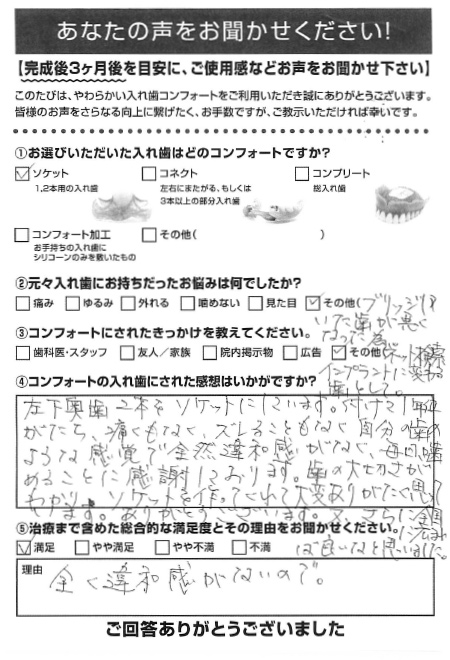 あなたの声をお聞かせください!
【完成後3ヶ月後を目安に、ご使用感などお声をお聞かせ下さい】
このたびは、やわらかい入れ歯コンフォートをご利用いただき誠にありがとうございます。
皆様のお声をさらなる向上に繋げたく、お手数ですが、ご教示いただければ幸いです。
①お選びいただいた入れ歯はどのコンフォートですか?
ソケット
1,2本用の入れ歯
コネクト
左右にまたがる、もしくは
3本以上の部分入れ歯
コンプリート
総入れ歯
コンフォート加工
お手持ちの入れ歯に
シリコーンのみを敷いたもの
その他( )
②元々入れ歯にお持ちだったお悩みは何でしたか?
痛み ゆるみ 外れる 噛めない 見た目 その他(ブリッジしていた歯が悪く
なった為
③コンフォートにされたきっかけを教えてください。
歯科医・スタッフ 友人/家族 院内掲示物 広告 その他(ネット検索
インプラントに変わる
歯として。
④コンフォートの入れ歯にされた感想はいかがですか?
左下奥歯2本をソケットにしています。付けて1年
がたち、痛くもなく、ズレることもなく自分の歯の
ような感覚で全然違和感がなく、毎日噛
めることに感謝しております。歯の大切さが
わかり、ソケットを作ってくれて大変ありがたく思って
ます。ありがとうございます。又、さらに全国
に広まれば良いなと思いました。
⑤治療まで含めた総合的な満足度とその理由をお聞かせください。
満足 やや満足 やや不満 不満
理由
全く違和感がないので。
ご回答ありがとうございました